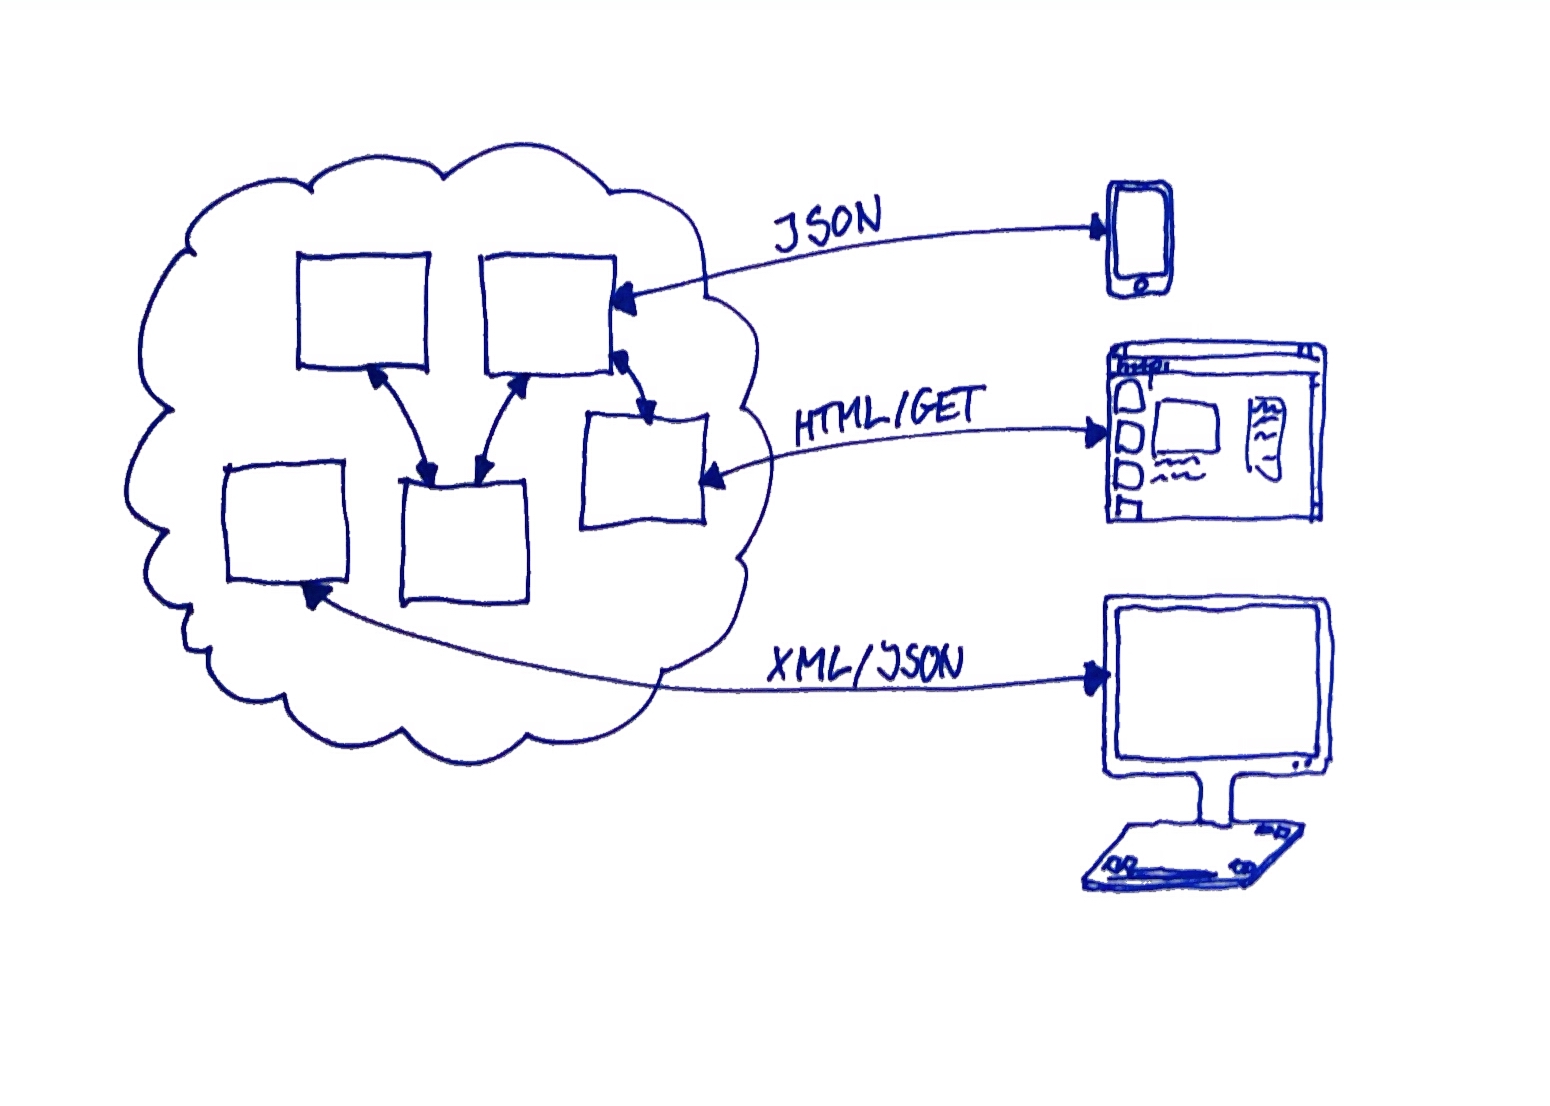 JSON
HTML/GET
http:
XML/JSON